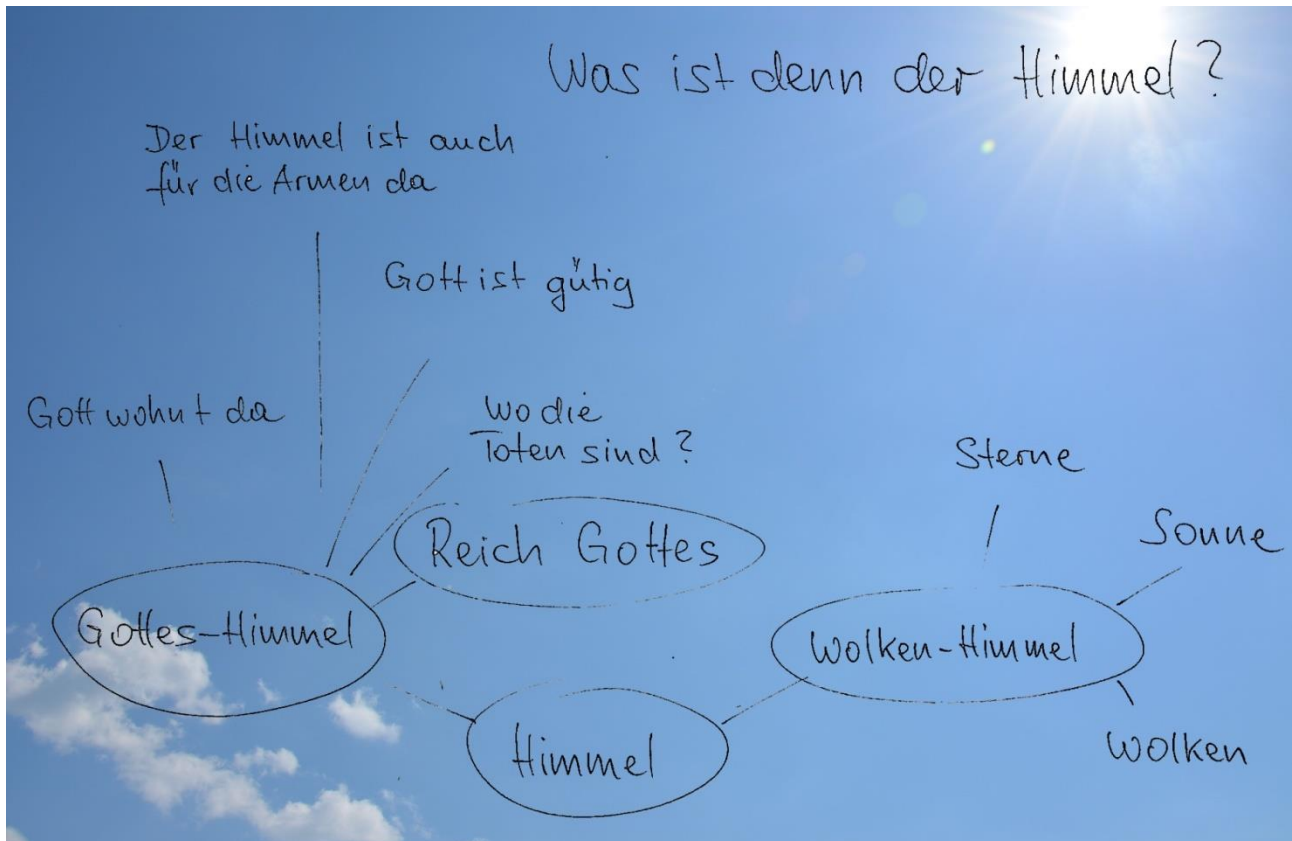 Was ist denn der Himmel?
Der Himmel ist auch
für die Armen da
Gott ist gütig
Gott wohnt da
Wo die
Toten sind?
Sterne
Sonne
Reich Gottes
Gottes-Himmel
Wolken-Himmel
Himmel
Wolken